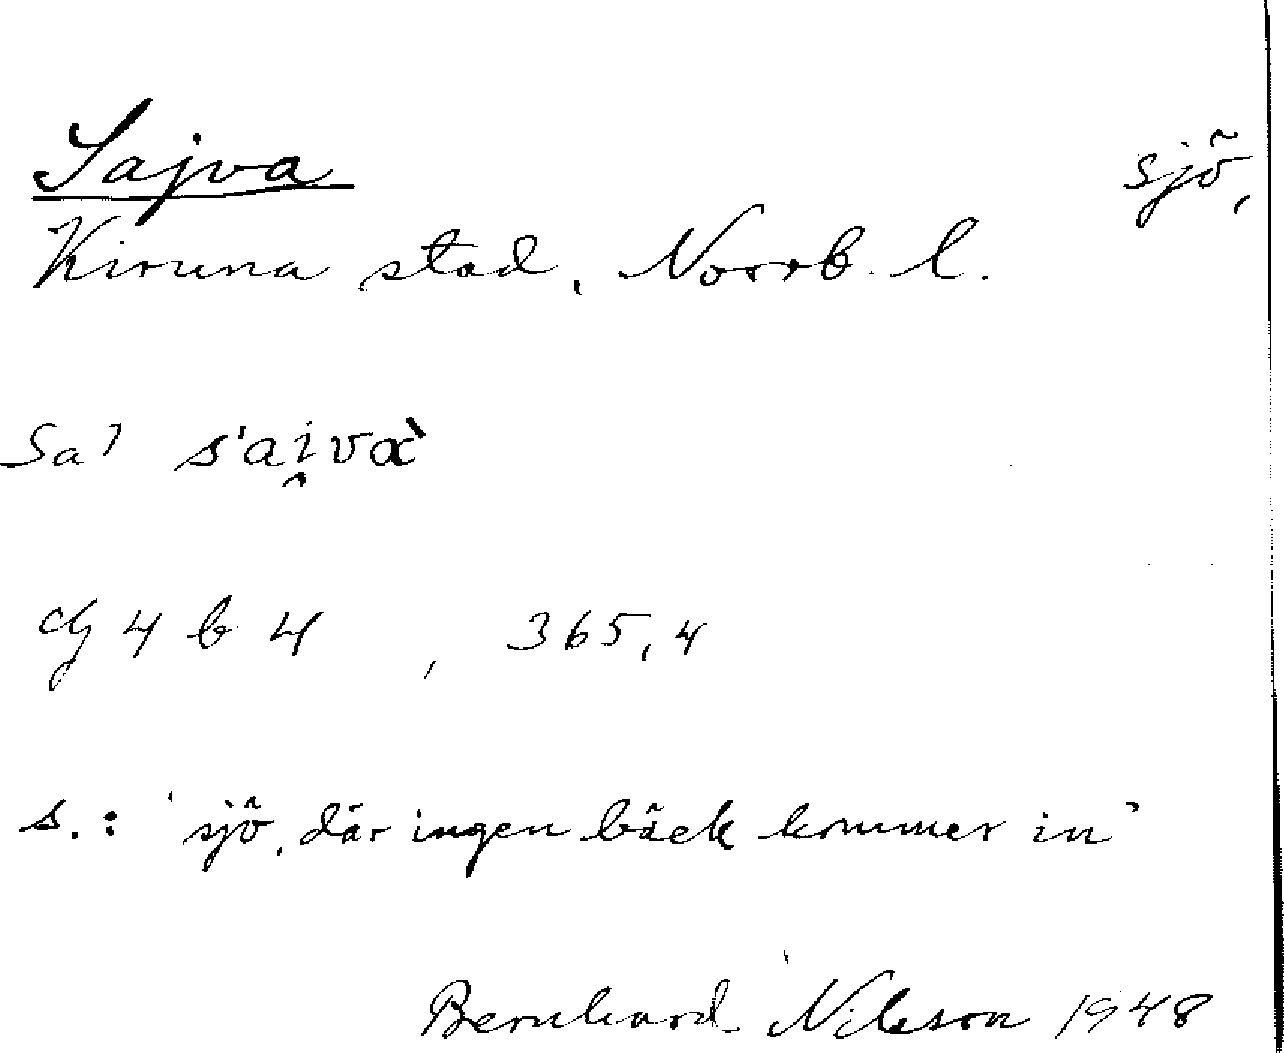 Sajva sjö,
Kiruna stad, Norrb. l.
Sa) s'ai̯vɑ̀
G 4 b 4 , 365,4
s.: 'sjö, där ingen bäck kommer in'
Bernhard Nilsson 1948